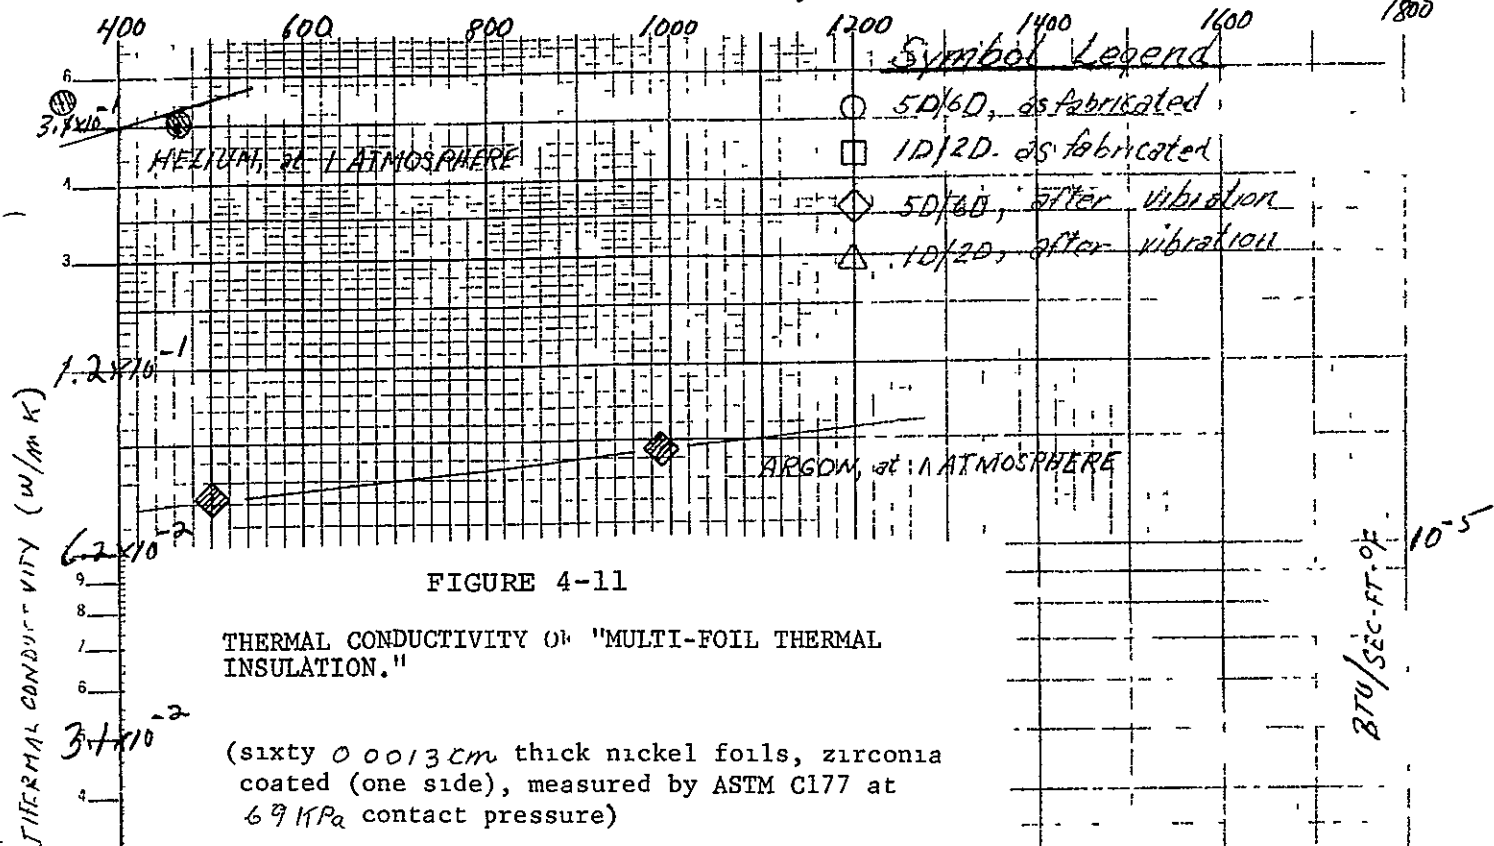 400 600 800 1000 1200 1400 1600 1800
Symbol Legend
5D/6D, as fabricated
1D/2D. as fabricated
5D/6D, after vibration
1D/2D, after vibration
6
3.1x10-1
HELIUM, at 1 ATMOSPHERE
4
3
1.2x10-1
ARGON, at 1 ATMOSPHERE
6.2x10-2
10-5
9
8
7
6
3.1x10-2
4
THERMAL CONDUCTIVITY (W/m K)
BTU/SEC-FT-°F
FIGURE 4-11
THERMAL CONDUCTIVITY OF "MULTI-FOIL THERMAL
INSULATION."
(sixty 0 0013 cm thick nickel foils, zirconia
coated (one side), measured by ASTM C177 at
69 KPa contact pressure)